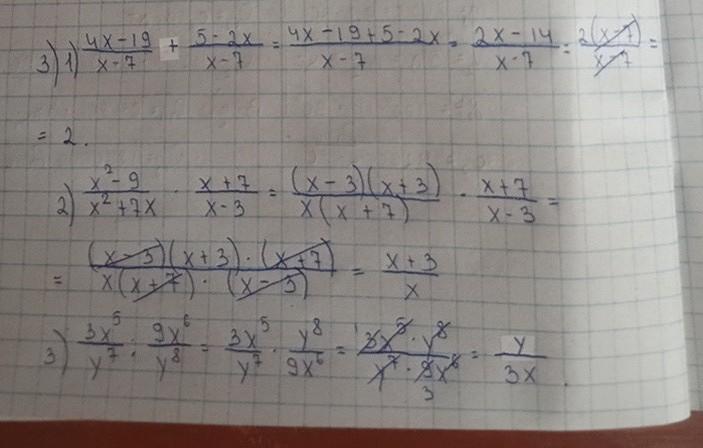 3) 1) (4x-19)/(x-7) + (5-2x)/(x-7) = (4x-19+5-2x)/(x-7) = (2x-14)/(x-7) = 2(x-7)/(x-7) =
= 2.
2) (x²-9)/(x²+7x) · (x+7)/(x-3) = (x-3)(x+3)/x(x+7) · (x+7)/(x-3) =
= (x-3)(x+3)·(x+7)/x(x+7)·(x-3) = (x+3)/x
3) 3x⁵/y⁷ : 9x⁶/y⁸ = 3x⁵/y⁷ · y⁸/9x⁶ = 3x⁵·y⁸/y⁷·9x⁶ = y/3x.
3